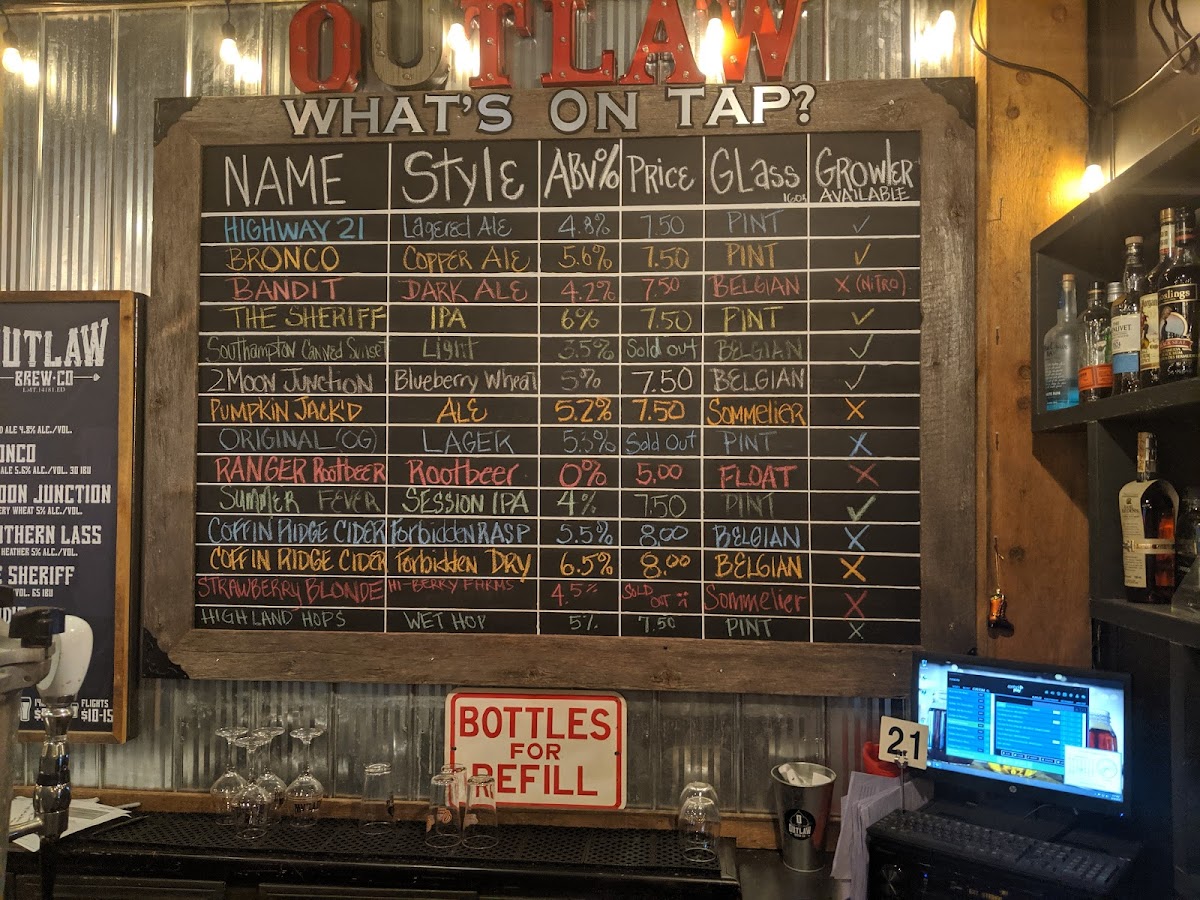 OUTLAW
WHAT'S ON TAP?
NAME Style ABV% Price Glass 16oz Growler AVAILABLE
HIGHWAY 21 Lagered Ale 4.8% 7.50 PINT ✓
BRONCO COPPER ALE 5.6% 7.50 PINT ✓
BANDIT DARK ALE 4.2% 7.50 BELGIAN X (NITRO)
THE SHERIFF IPA 6% 7.50 PINT ✓
Southampton Canned Sunset Light 3.5% Sold out BELGIAN ✓
2 Moon Junction Blueberry Wheat 5% 7.50 BELGIAN ✓
PUMPKIN JACK'D ALE 5.2% 7.50 Sommelier X
ORIGINAL (OG) LAGER 5.3% Sold Out PINT X
RANGER Rootbeer Rootbeer 0% 5.00 FLOAT X
Summer FEVER SESSION IPA 4% 7.50 PINT ✓
COFFIN RIDGE CIDER Forbidden RASP 5.5% 8.00 BELGIAN X
COFFIN RIDGE CIDER Forbidden DRY 6.5% 8.00 BELGIAN X
STRAWBERRY BLONDE HI-BERRY FARMS 4.5% SOLD OUT :( Sommelier X
HIGHLAND HOPS WET HOP 5% 7.50 PINT X
UTLAW
BREW·CO
ALE 4.8% ALC./VOL.
ONCO
ALE 5.6% ALC./VOL. 30 IBU
OON JUNCTION
ERY WHEAT 5% ALC./VOL.
UTHERN LASS
HEATHER 5% ALC./VOL.
E SHERIFF
VOL. 65 IBU
FLIGHTS
$10-15
BOTTLES
FOR
REFILL
21
OUTLAW